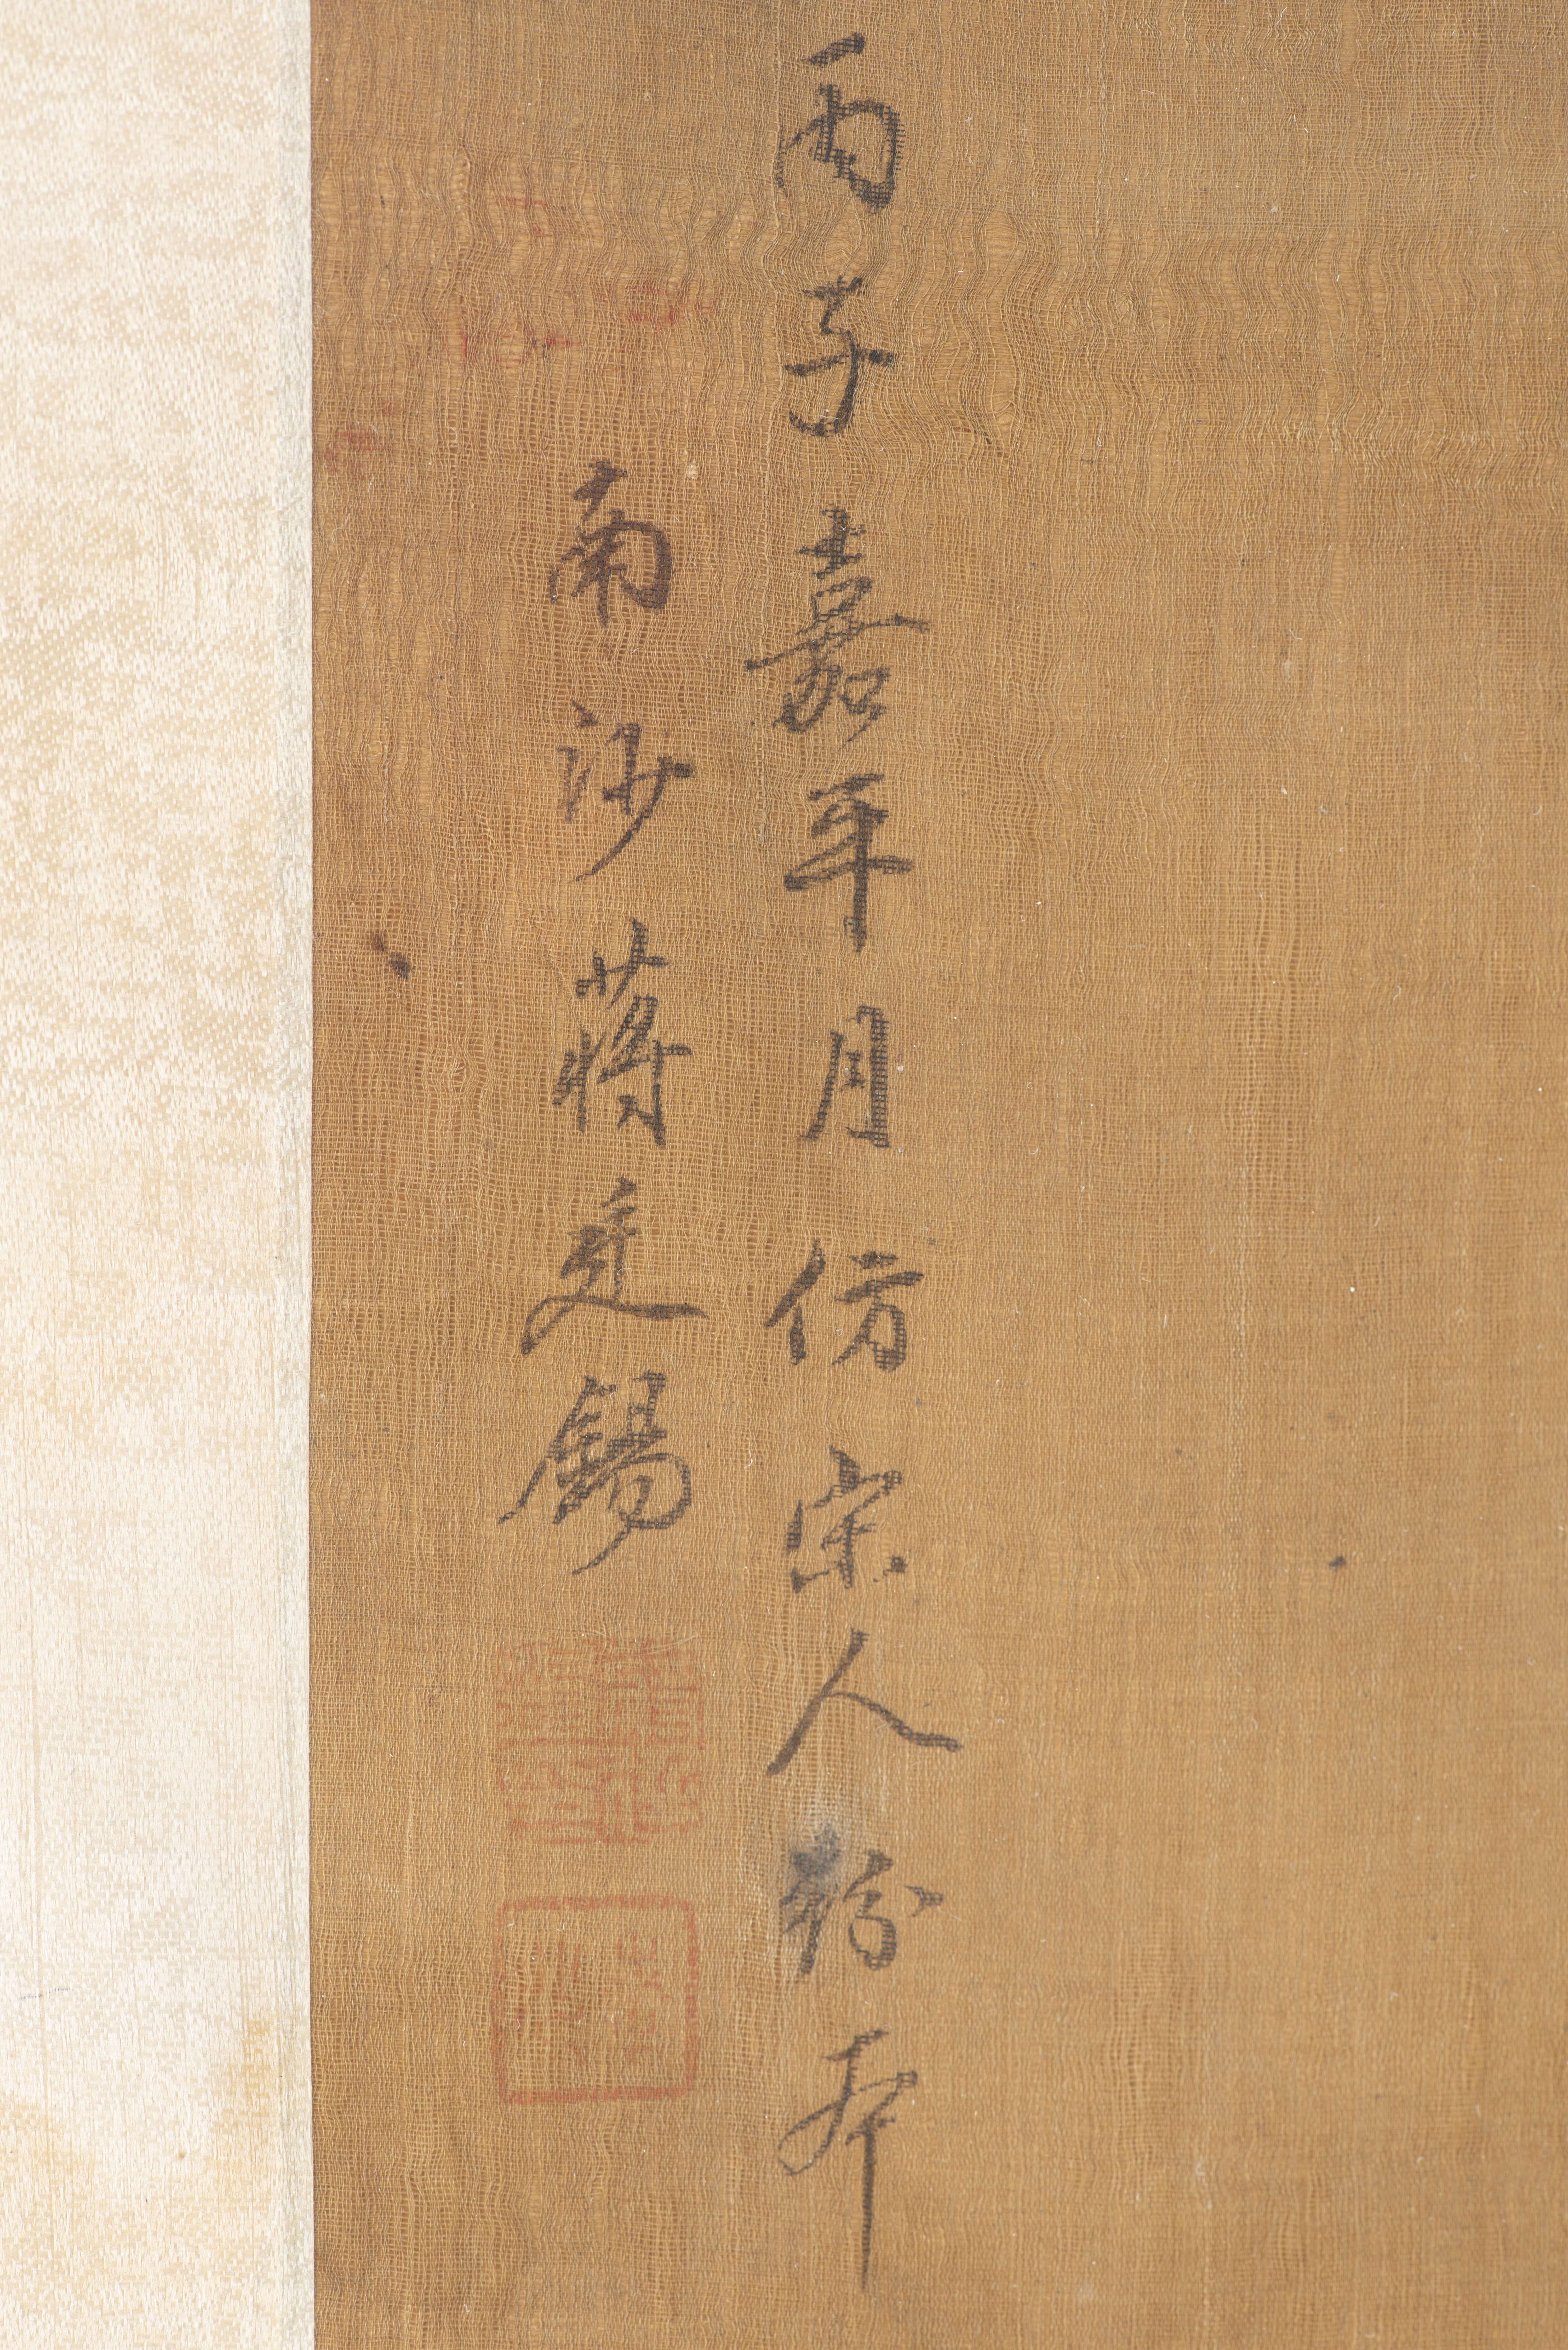 丙子嘉平月仿宋人粉本
南沙蒋廷錫